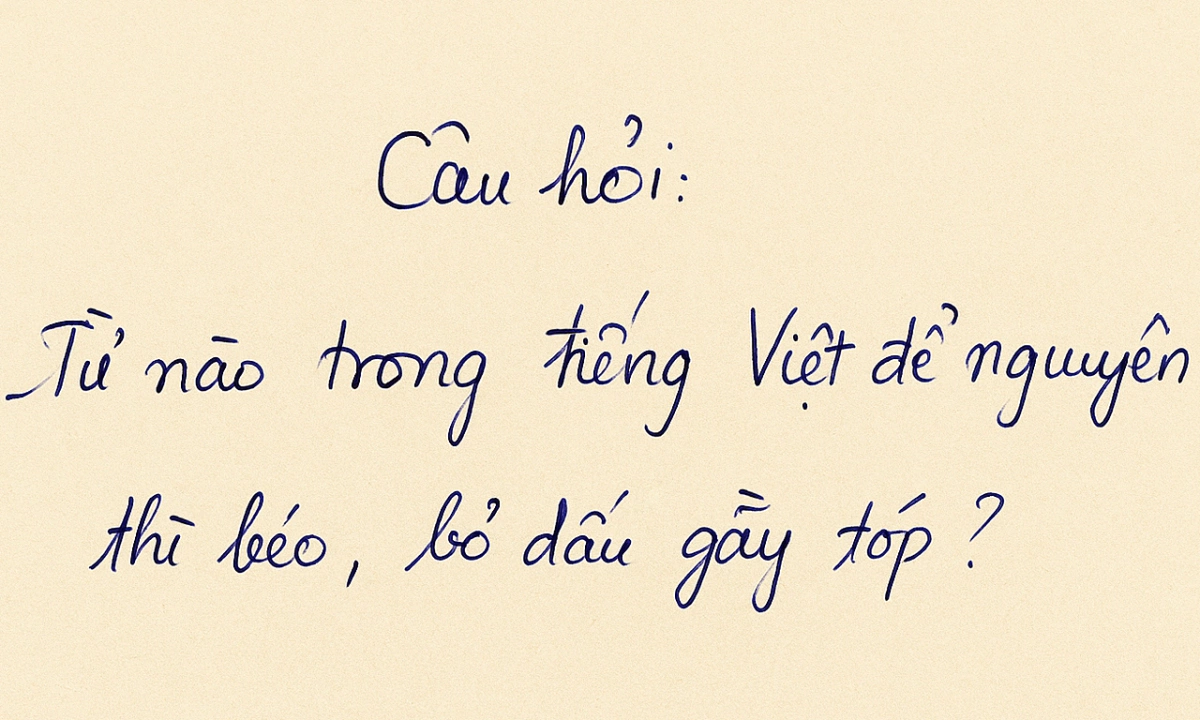 Câu hỏi:
Từ nào trong tiếng Việt để nguyên
thì béo, bỏ dấu gầy tóp?